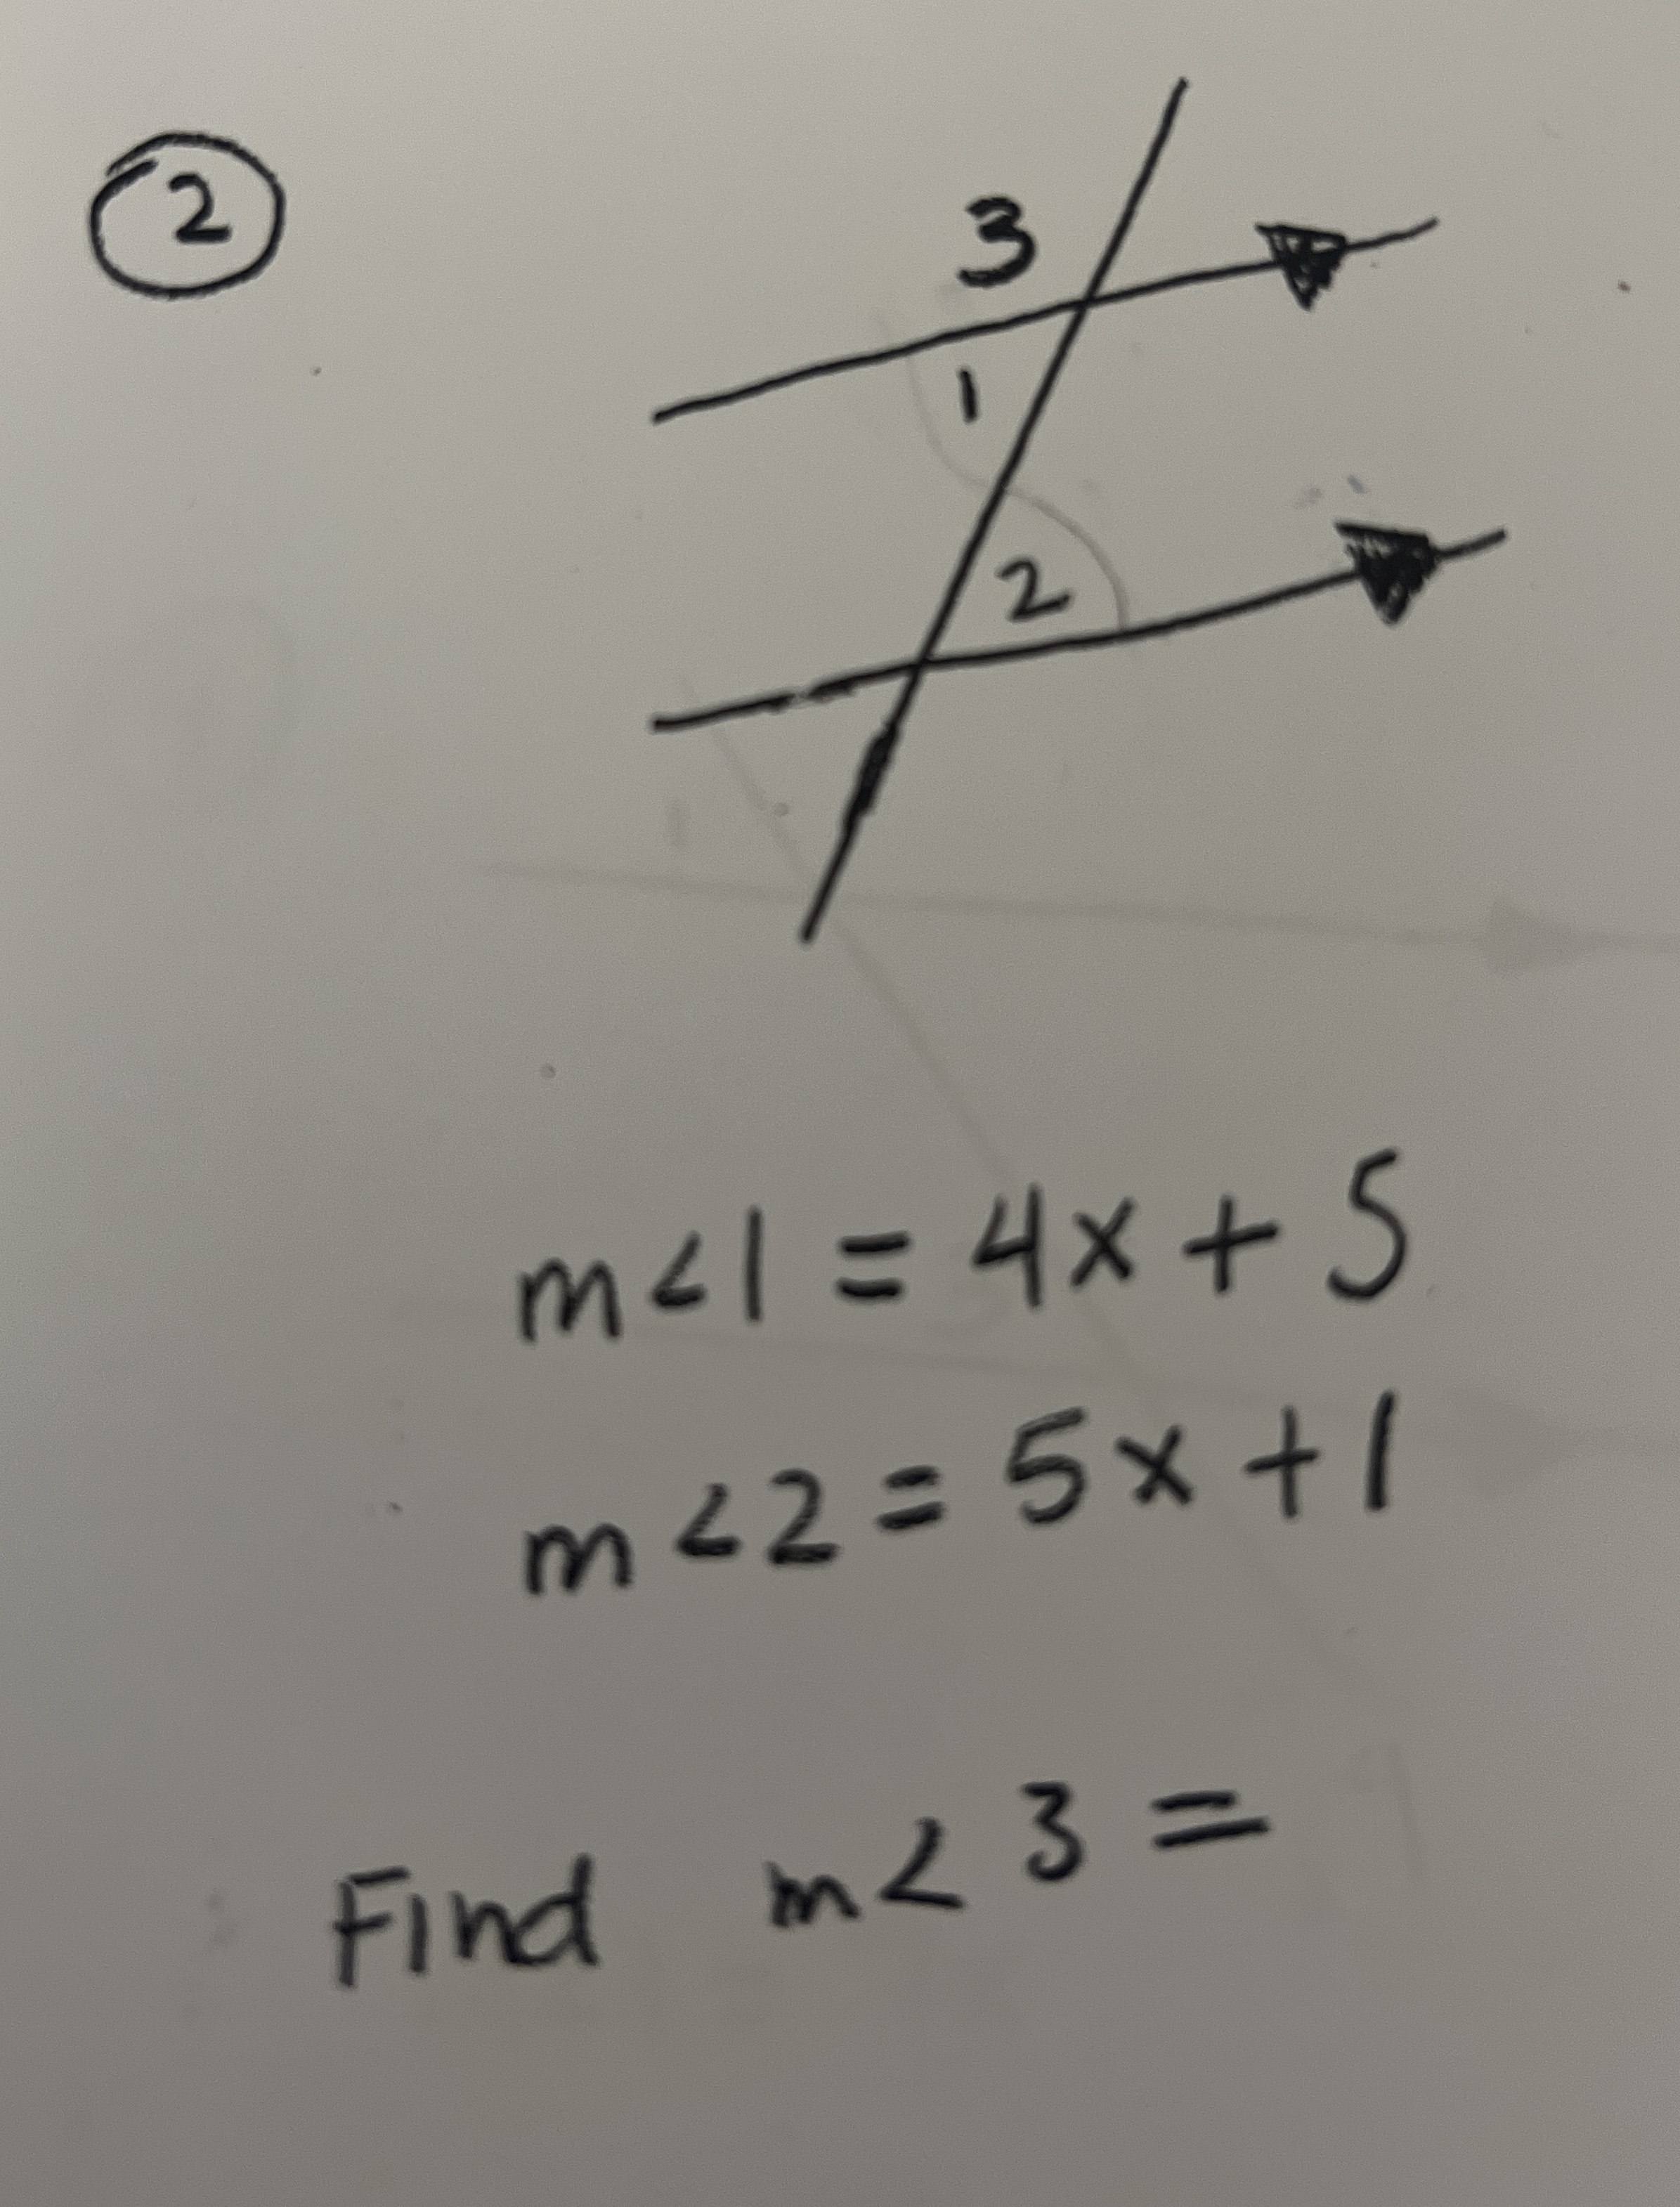 2
3
1
2
m<1 = 4x + 5
m<2 = 5x + 1
Find m<3 =